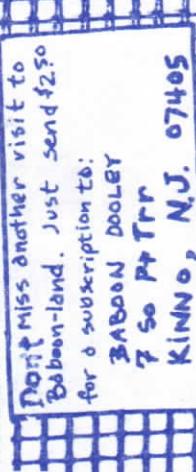 Don't Miss another visit to
Baboon-land. Just send $2.50
for a subscription to:
BABOON DOOLEY
7 So Pt Trr
KINNO, N.J. 07405